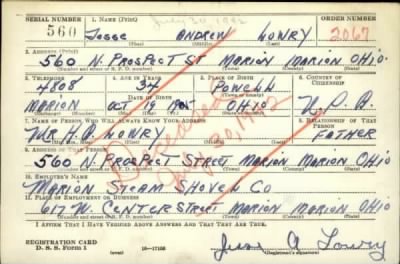 SERIAL NUMBER 1. NAME (Print) ORDER NUMBER
July 30, 1942
560 Jesse ANDREW LOWRY 2067
(First) (Middle) (Last)
2. ADDRESS (Print)
560 N. PROSPECT ST MARION MARION OHIO
(Number and street or R. F. D. number) (Town) (County) (State)
3. TELEPHONE 4. AGE IN YEARS 5. PLACE OF BIRTH 6. COUNTRY OF CITIZENSHIP
4808 34 POWELL
DATE OF BIRTH
MARION OCT 19 OHIO U.S.A.
(Exchange) (Mo.) (Day) (Yr.) (State or country)
7. NAME OF PERSON WHO WILL ALWAYS KNOW YOUR ADDRESS 8. RELATIONSHIP OF THAT PERSON
MR. H. LOWRY FATHER
Deceased
July 30, 1942
9. ADDRESS OF THAT PERSON
560 N. PROSPECT STREET MARION MARION OHIO
(Number and street or R. F. D. number) (Town) (County) (State)
10. EMPLOYER'S NAME
MARION STEAM SHOVEL CO
11. PLACE OF EMPLOYMENT OR BUSINESS
617 W. CENTER STREET MARION MARION OHIO
(Number and street or R. F. D. number) (Town) (County) (State)
I AFFIRM THAT I HAVE VERIFIED ABOVE ANSWERS AND THAT THEY ARE TRUE.
REGISTRATION CARD
D. S. S. Form 1 16—17105 Jesse A Lowry
(Registrant's signature)